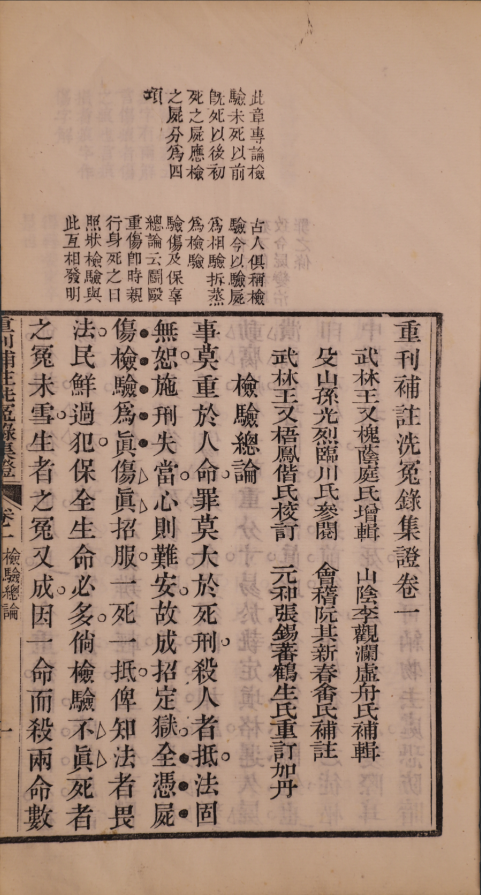 此章專論檢
驗未死以前
旣死以後初
死之屍應檢
之屍分爲四
項
古人俱稱檢
驗今以驗屍
爲相驗拆蒸
爲檢驗
驗傷及保辜
總論云鬭毆
重傷卽時親
行身死之日
照狀檢驗與
此互相發明
重刊補註洗冤錄集證卷一
武林王又槐蔭庭氏增輯
山陰李觀瀾虛舟氏補輯
山孫光烈臨川氏參閱
會稽阮其新春畬氏補註
武林王又梧鳳偕氏校訂
元和張錫蕃鶴生氏重訂加丹
檢驗總論
事莫重於人命罪莫大於死刑殺人者抵法固
無恕施刑失當心則難安故成招定獄全憑屍
傷檢驗爲眞傷眞招服一死一抵俾知法者畏
法民鮮過犯保全生命必多倘檢驗不眞死者
之冤未雪生者之冤又成因一命而殺兩命數
重刊補註洗冤錄集證
卷一
檢驗總論
一